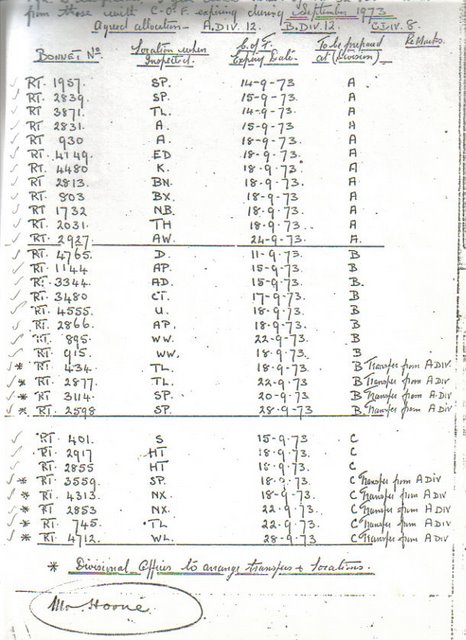 from those with C.O.F. expiring during September 1973
Agreed allocation - A.DIV. 12. B.DIV. 12. C.DIV. 8.
BONNET No. Location when Inspected. C.of F. Expiry Date. To be prepared at (Division) Remarks.
✓ RT. 1957. SP. 14-9-73 A
✓ RT. 2839. SP. 15-9-73 A
✓ RT. 3871. TL. 14-9-73 A
✓ RT. 2831 A. 15-9-73 A
✓ RT 930 A. 18-9-73 A
✓ RT. 4149. ED 18.9.73. A
✓ RT. 4480 K. 18.9.73 A
✓ RT. 2813. BN. 18.9.73. A
✓ RT. 803 BX. 18.9.73 A
✓ RT 1732 NB. 18.9.73. A
✓ RT. 2031. TH 18.9.73 A
✓ RT. 2927. AW. 24-9-73. A.
✓ RT. 4765. D. 11-9-73. B
✓ RT. 1144 AP. 15-9-73. B
✓ RT. 3344 AD. 15-9-73 B.
✓ RT. 3480 CT. 17-9-73 B
✓ RT. 4555. U. 18.9.73 B
✓ RT. 2866. AP. 18.9.73 B
✓ RT. 895. WW. 22-9-73 B
✓ RT. 915. WW. 18.9.73 B
✓ * RT. 434. TL. 18.9.73 B Transfer from A DIV.
✓ * RT. 2877. TL. 22-9-73 B Transfer from A DIV
✓ * RT. 3114. SP. 20-9-73 B Transfer from A DIV
✓ * RT. 2598 SP. 28-9-73 B. Transfer from A DIV
✓ RT. 401. S 15-9-73 C
✓ RT. 2917 HT 18.9.73. C
✓ RT. 2855 HT 18.9.73 C
✓ * RT. 3559. SP. 18.9.73 C Transfer from A DIV
✓ * RT. 4313. NX. 18.9.73. C Transfer from A DIV
✓ * RT. 2853 NX. 22-9-73. C Transfer from A DIV.
✓ * RT. 745. TL 22-9-73. C Transfer from A DIV
✓ * RT. 4712. WL. 28-9-73 C Transfer from A DIV.
* Divisional Offices to arrange transfers & locations.
Mr Hoone.